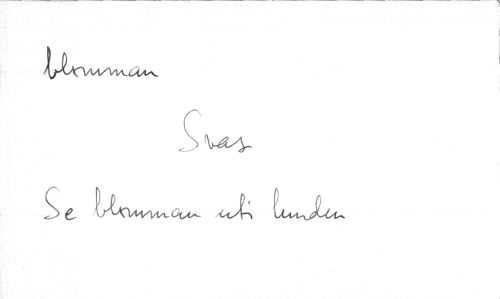 blomman
Svar
Se blomman uti lunden